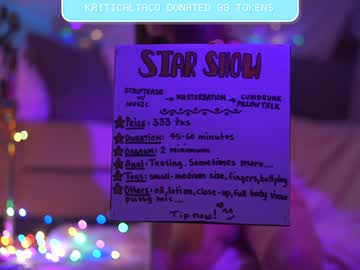 KRITICALTACO DONATED 99 TOKENS
STAR SHOW
STRIPTEASE W/ MUSIC → MASTERBATION → CUMDRUNK PILLOWTALK
PRICE: 333 tks
DURATION: 45-60 minutes
ORGASM: 2 minimum
Anal: Teasing. Sometimes more...
TOYS: small-medium size, fingers, buttplug
OTHERS: oil, lotion, close-up, full body view
pussy mic...
Tip now!